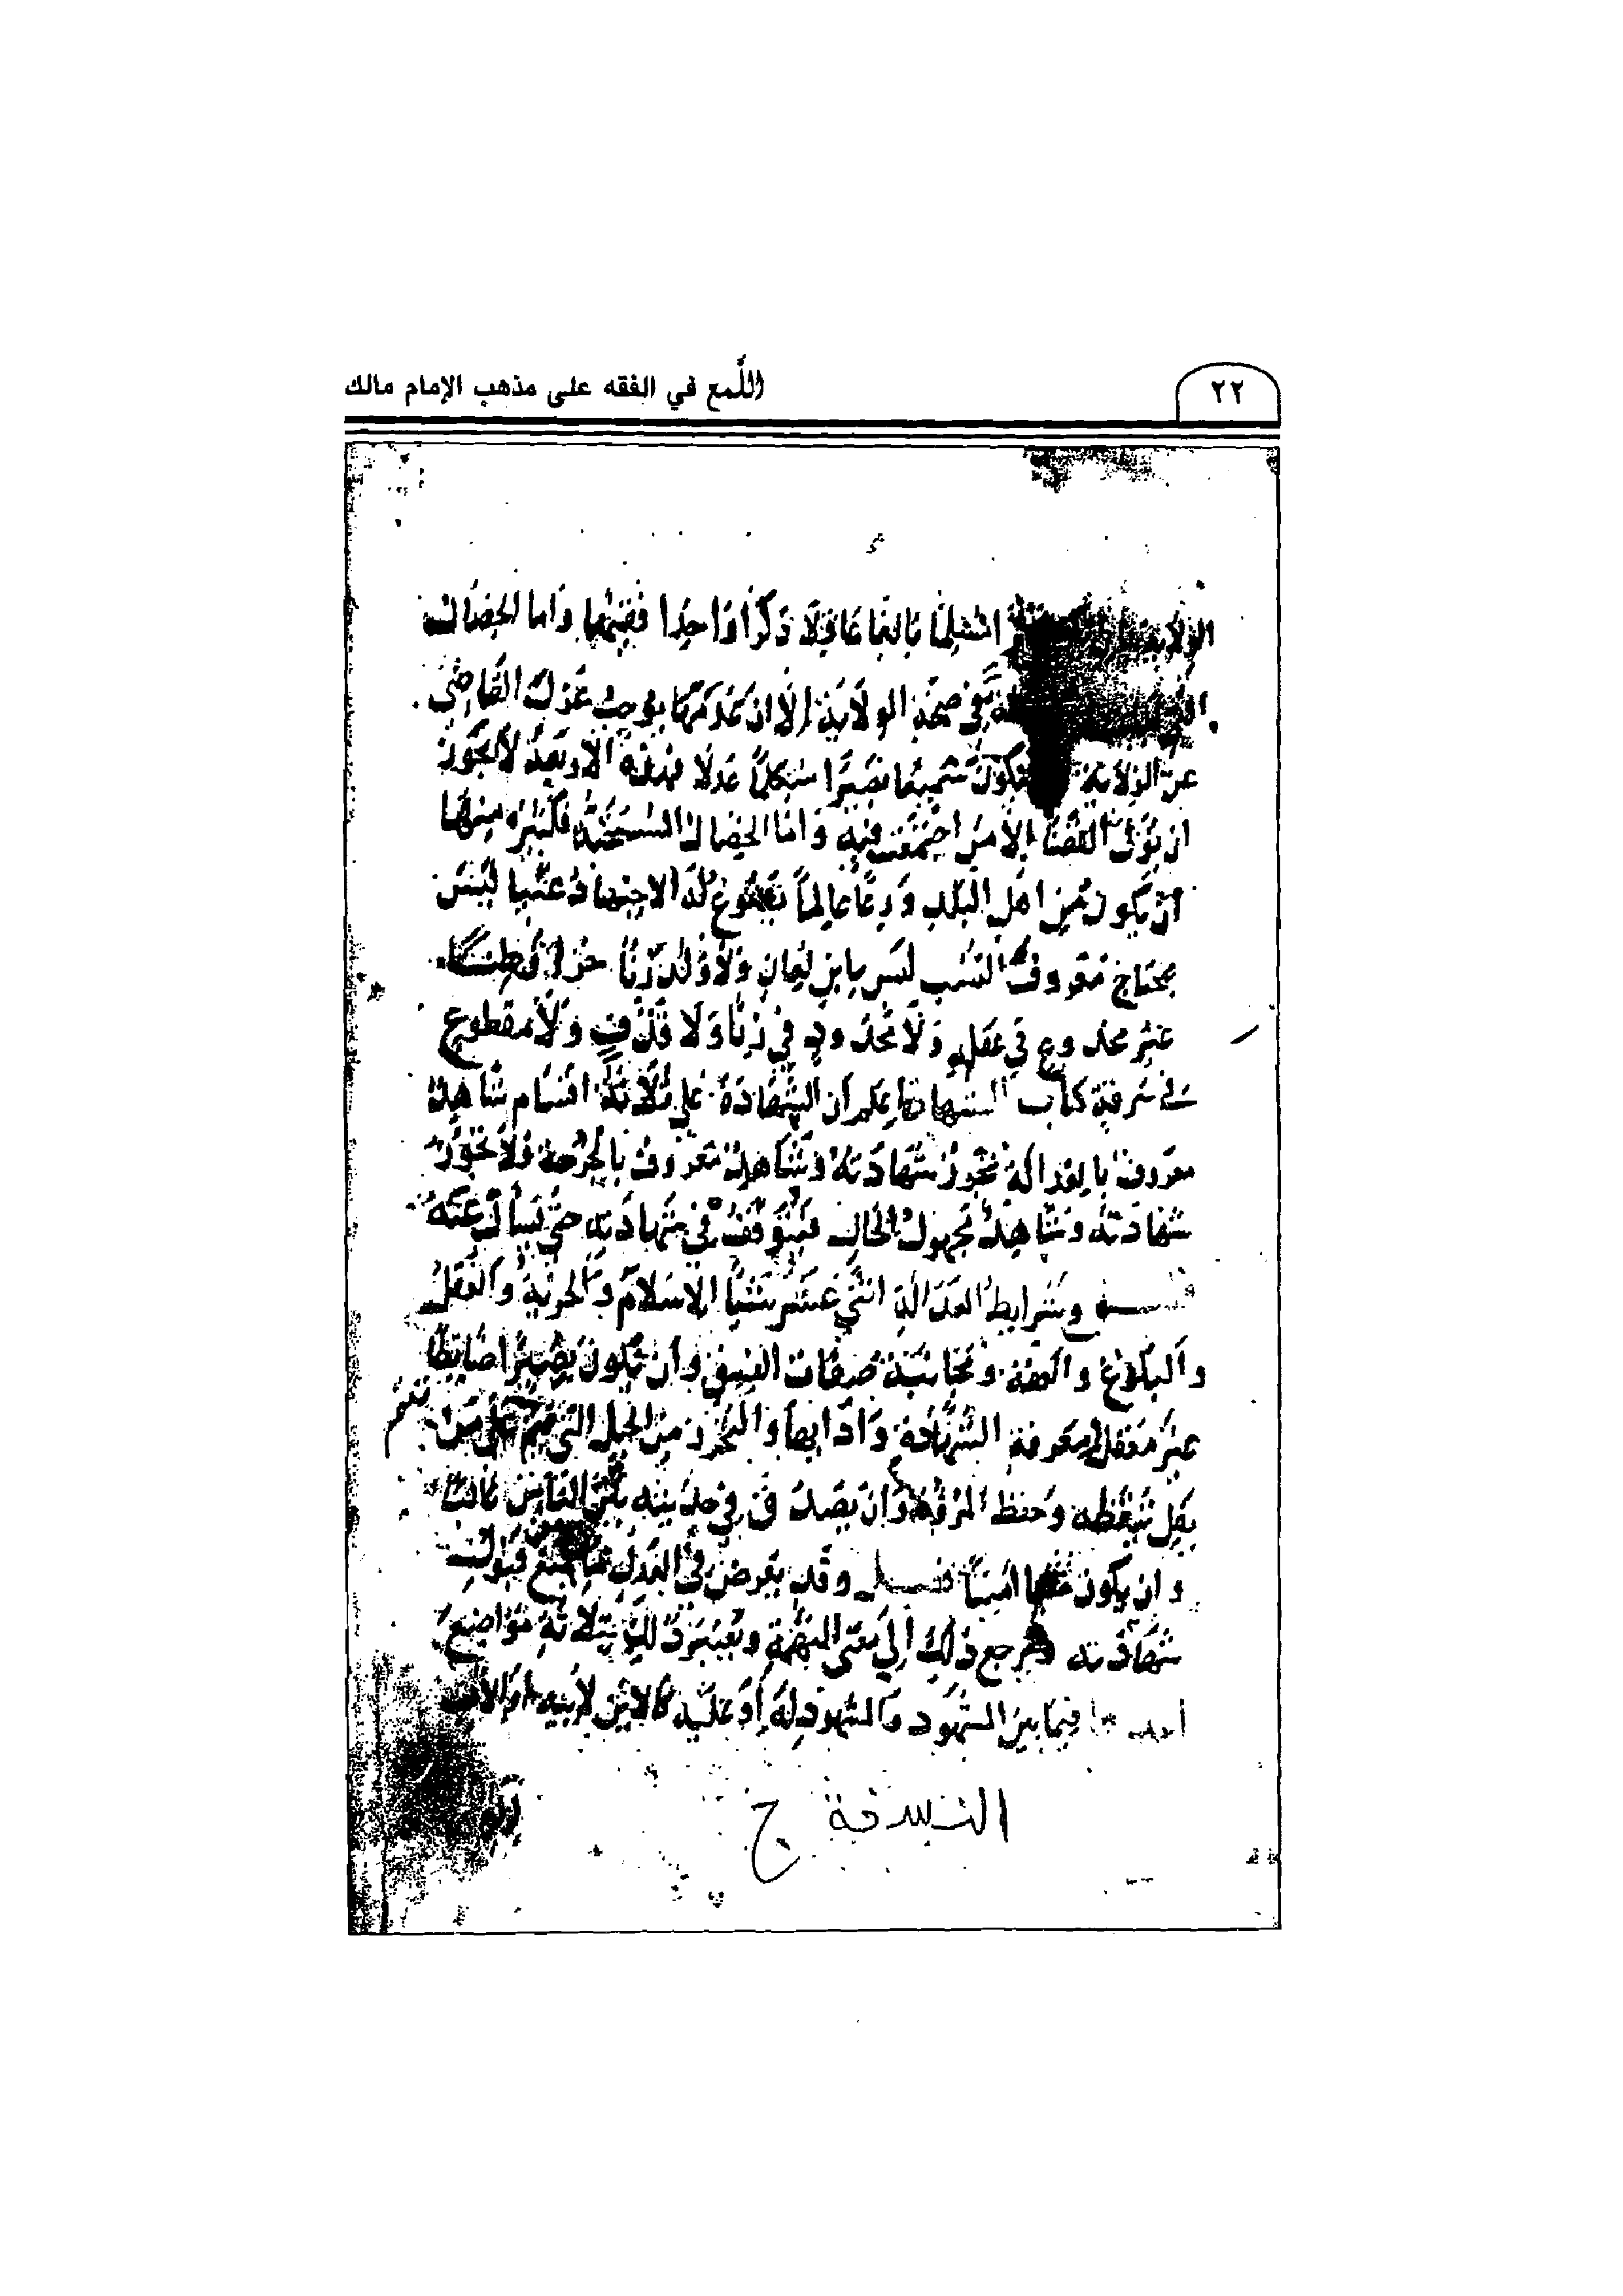 ٢٢
اللُّمع في الفقه على مذهب الإمام مالك
بالغا عاقلا ذكرا واحدا فقيها واما الخصال
في صحة الولاية الا ان عدمها يوجب عزل القاضي
عن الولاية سميعا بصيرا متكلما عدلا فهذه الاربعة لا يجوز
ان يولى القضا الا من اجتمعت فيه واما الخصال المستحبة فكثيرة منها
ان يكون من اهل البلد ورعا عالما يسوغ له الاجتهاد غنيا ليس
بمحتاج معروف النسب ليس بابن لعان ولا ولد زنا جزلا فطنا
غير مخدوع في عقله ولا محدود في زنا ولا قذف ولا مقطوع
في سرقة كتاب الشهادة اعلم ان الشهادة على ثلاثة اقسام شاهد
معروف بالعدالة تجوز شهادته وشاهد معروف بالجرحة ولا تجوز
شهادته وشاهد مجهول الحال فيتوقف في شهادته حتى يسأل عنه
فصل وشرايط العدالة اثني عشر شيا الاسلام والحرية والعقل
والبلوغ والعفة ومجانبة صفات الفسق وان يكون بصيرا ضابطا
غير مغفل ومعرفة الشهادة وادابها والتحرز من الحيل التي تتم على من
تتم
يقل تيقظه وحفظ المروة وان يصدق في حديثه بين الناس غالبا
وان يكون امينا فصل وقد يعرض في العدل ما يمنع قبول
شهادته ومرجع ذلك الى معنى التهمة ويعتبر ذلك بثلاثة مواضع
احدها فيما بين الشهود والمشهود له او عليه كالابن لابيه او الاب
النسخة ج